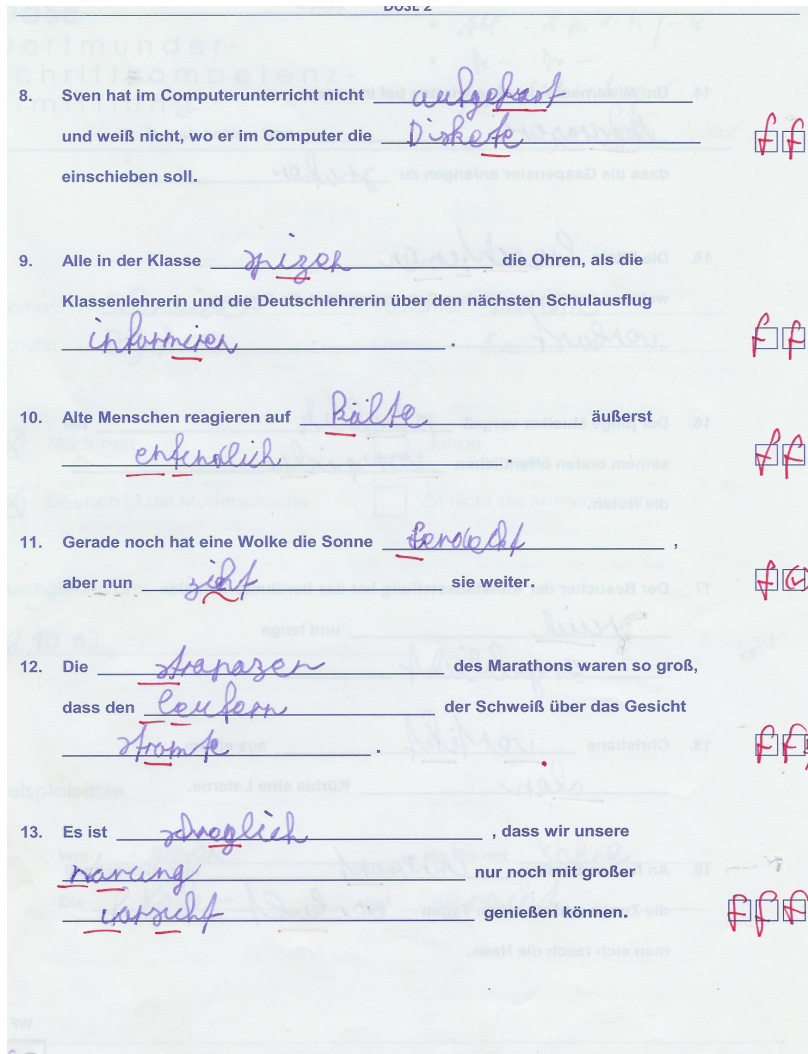 DOSE 2
8. Sven hat im Computerunterricht nicht aufgepast
und weiß nicht, wo er im Computer die Diskete f f
einschieben soll.
9. Alle in der Klasse spizen die Ohren, als die
Klassenlehrerin und die Deutschlehrerin über den nächsten Schulausflug
informiren . f f
10. Alte Menschen reagieren auf kälte äußerst
enfendlich . f f
11. Gerade noch hat eine Wolke die Sonne ferdeckt ,
aber nun ziht sie weiter. f
12. Die strapazen des Marathons waren so groß,
dass den leufern der Schweiß über das Gesicht
stromte . f f
13. Es ist , dass wir unsere
narung nur noch mit großer
vorsicht genießen können. f f f